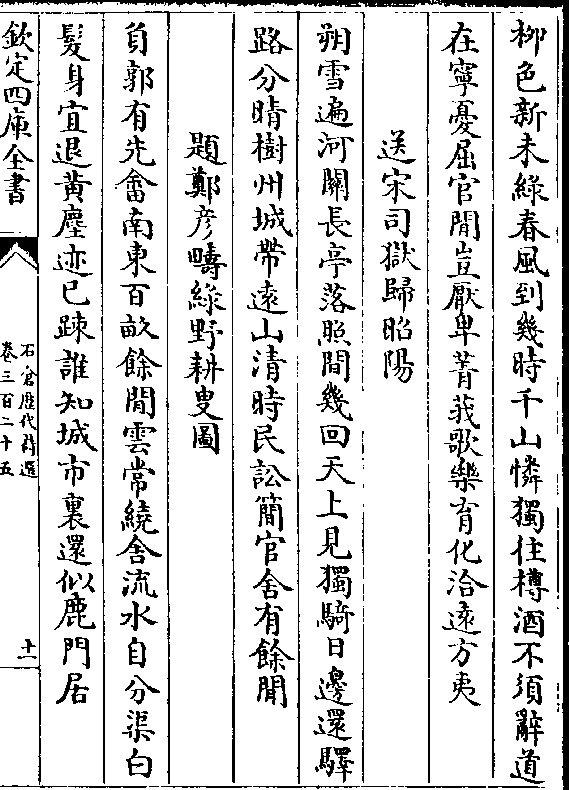 柳色新未綠春風到幾時千山憐獨往樽酒不須辭道
在寧憂屈官閒豈厭卑菁莪歌樂育化洽遠方夷
送宋司獄歸昭陽
朔雪遍河關長亭落照間幾回天上見獨騎日邊還驛
路分晴樹州城帶遠山清時民訟簡官舍有餘閒
題鄭彦疇綠野耕叟圖
負郭有先畬南東百畝餘閒雲常繞舍流水自分渠白
髮身宜退黃塵迹已踈誰知城市裏還似鹿門居
欽定四庫全書
石倉歷代詩選
卷三百二十五
十一